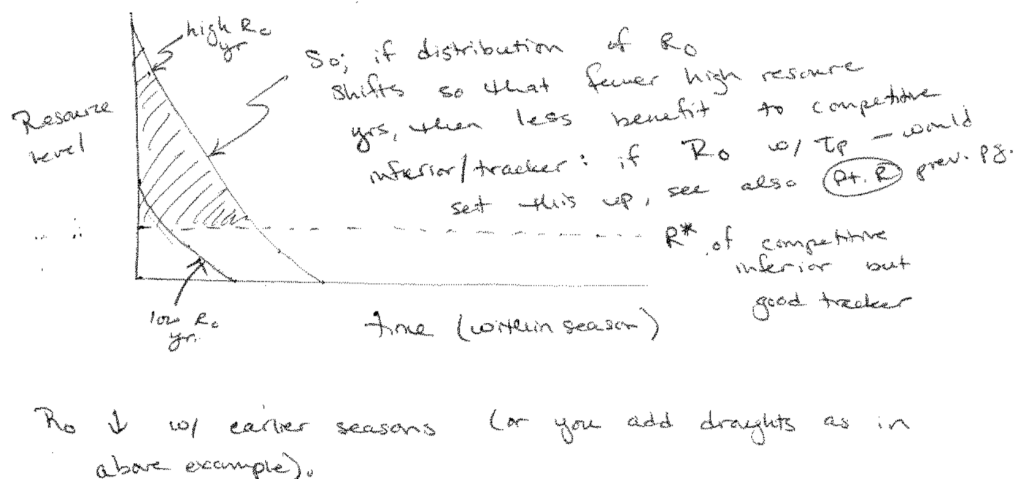 high Ro
yr
So; if distribution of Ro
shifts so that fewer high resource
yrs, then less benefit to competitive
inferior/tracker: if Ro w/ τp — would
set this up, see also pt. R prev. pg.
Resource
level
R* of competitive
inferior but
good tracker
low Ro
yr.
time (within season)
Ro ↓ w/ earlier seasons (or you add draughts as in
above example).